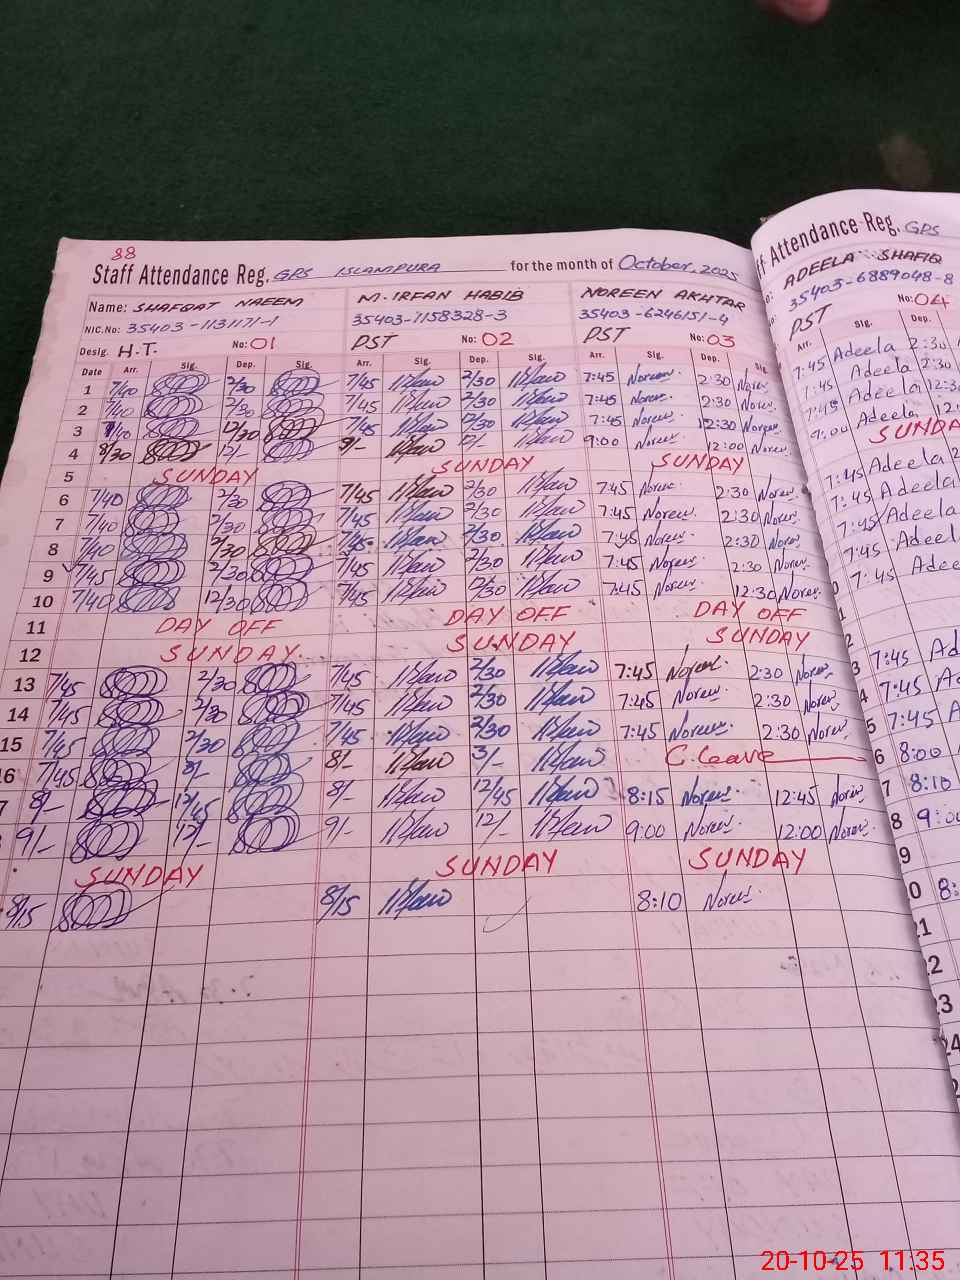 88
Staff Attendance Reg. GPS ISLAMPURA for the month of October, 2025
Name: SHAFQAT NAEEM M. IRFAN HABIB NOREEN AKHTAR
NIC.No: 35403-1131171-1 35403-7158328-3 35403-6246151-4
Desig. H.T. No: 01 PST No: 02 PST No: 03
Date Arr. Sig. Dep. Sig. Arr. Sig. Dep. Sig. Arr. Sig. Dep. Sig.
1 7/40 2/30 7/45 2/30 7:45 Noreen 2:30
2 7/40 2/30 7/45 2/30 7:45 Noreen 2:30
3 7/40 12/30 7/45 12/30 7:45 Noreen 12:30
4 8/30 12/- 9/- 12/- 9:00 Noreen 12:00
5 SUNDAY SUNDAY SUNDAY
6 7/40 2/30 7/45 2/30 7:45 Noreen 2:30
7 7/40 2/30 7/45 2/30 7:45 Noreen 2:30
8 7/40 2/30 7/45 2/30 7:45 Noreen 2:30
9 7/45 2/30 7/45 2/30 7:45 Noreen 2:30
10 7/40 12/30 7/45 12/30 7:45 Noreen 12:30
11 DAY OFF DAY OFF DAY OFF
12 SUNDAY SUNDAY SUNDAY
13 7/45 2/30 7/45 2/30 7:45 Noreen 2:30
14 7/45 2/30 7/45 2/30 7:45 Noreen 2:30
15 7/45 2/30 7/45 2/30 7:45 Noreen 2:30
16 7/45 8/- 8/- 3/- C.leave
7 8/- 12/45 8/- 12/45 8:15 Noreen 12:45
9/- 12/- 9/- 12/- 9:00 Noreen 12:00
SUNDAY SUNDAY SUNDAY
8/15 8/15 8:10 Noreen
ff Attendance Reg. GPS
ADEELA SHAFIQ
35403-6889048-8
PST No: 04
Arr. Sig. Dep.
7:45 Adeela 2:30
7:45 Adeela 2:30
7:45 Adeela 12:30
9:00 Adeela 12:
SUNDA
7:45 Adeela 2
7:45 Adeela
7:45 Adeela
7:45 Adeel
7:45 Adee
3 7:45 Ad
4 7:45 Ad
5 7:45 A
6 8:00
7 8:10
8 9:00
9
0 8:
21
22
23
24
20-10-25 11:35